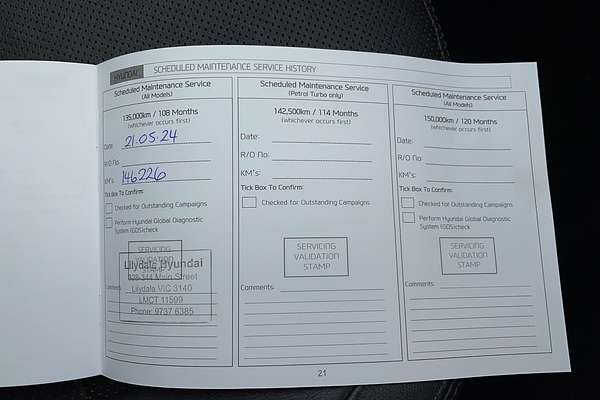 HYUNDAI SCHEDULED MAINTENANCE SERVICE HISTORY
Scheduled Maintenance Service
(All Models)
135,000km / 108 Months
(whichever occurs first)
Date: 21.05.24
R/O No:
KM's: 146226
Tick Box To Confirm:
Checked for Outstanding Campaigns
Perform Hyundai Global Diagnostic
System (GDS)check
SERVICING
VALIDATION
STAMP
Lilydale Hyundai
Main Street
Lilydale VIC 3140
LMCT 11599
Phone: 9737 6385
Comments:
Scheduled Maintenance Service
(Petrol Turbo only)
142,500km / 114 Months
(whichever occurs first)
Date:
R/O No:
KM's:
Tick Box To Confirm:
Checked for Outstanding Campaigns
SERVICING
VALIDATION
STAMP
Comments:
Scheduled Maintenance Service
(All Models)
150,000km / 120 Months
(whichever occurs first)
Date:
R/O No:
KM's:
Tick Box To Confirm:
Checked for Outstanding Campaigns
Perform Hyundai Global Diagnostic
System (GDS)check
SERVICING
VALIDATION
STAMP
Comments:
21